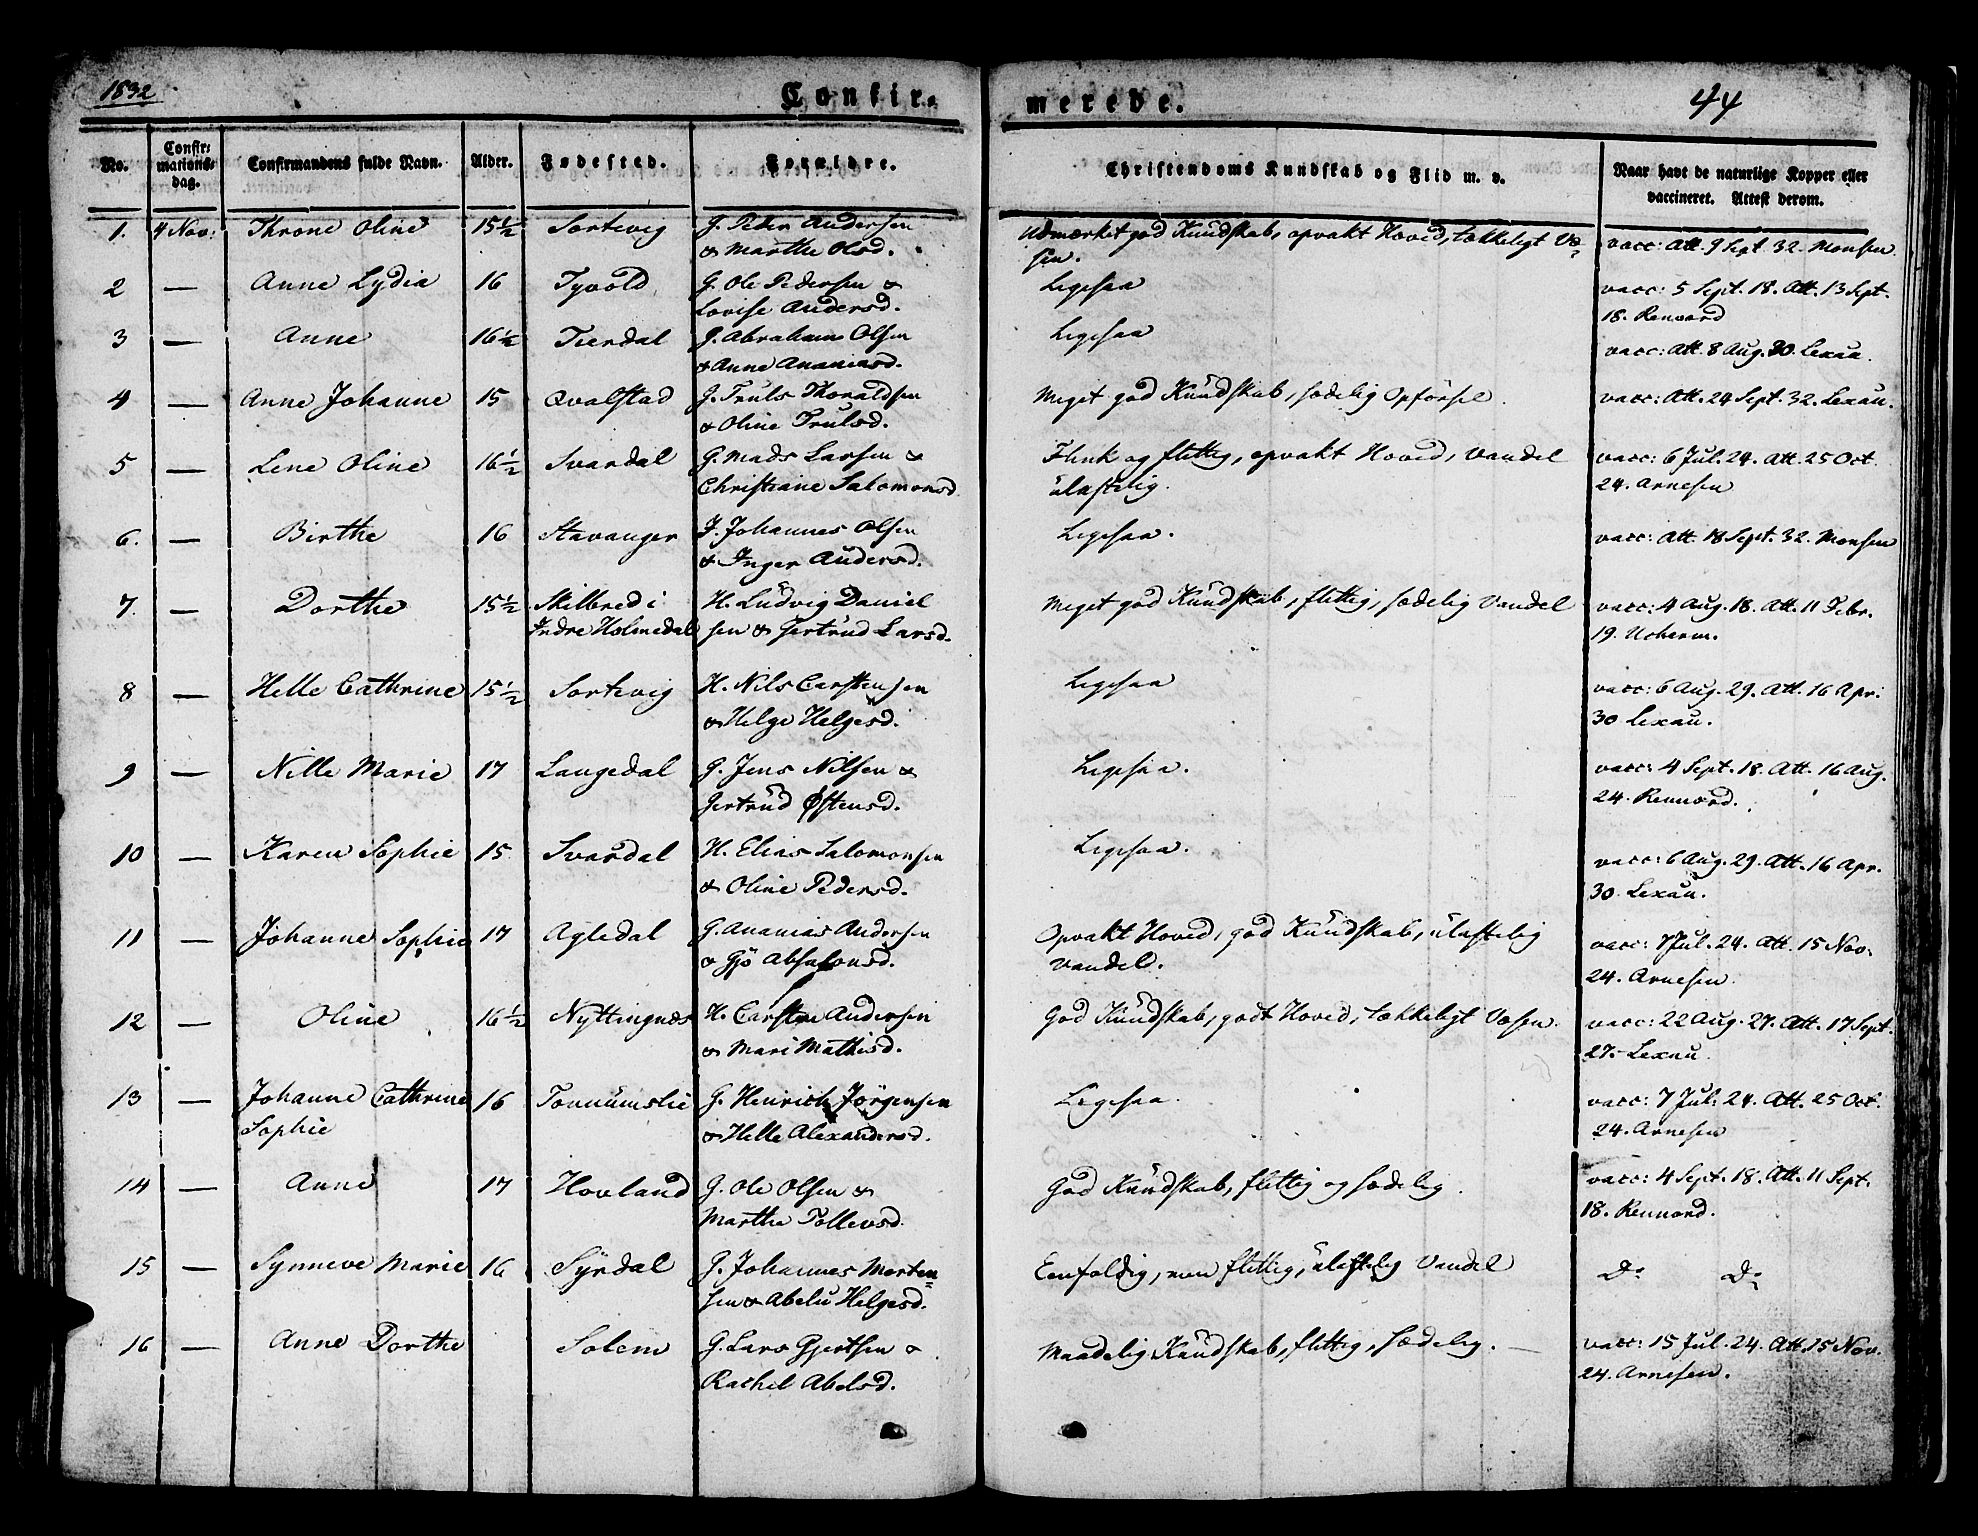 1832
Confir-
merede.
44
No.
Confir-
mations-
dag.
Confirmandens fulde Navn.
Alder.
Fødested.
Forældre.
Christendoms Kundskab og Flid m. v.
Naar havt de naturlige Kopper eller
vaccineret. Attest derom.
1. 4 Nov: Throne Oline 15½ Sortevig G. Peder Andersen Udmærket god Kundskab, opvakt Hoved, tækkeligt Væ- vacc: Att. 9 Sept. 32. Monsen.
& Marthe Olsd. sen.
2 — Anne Lydia 16 Tyvold G. Ole Pedersen & Ligesaa vacc: 5 Sept. 18. Att. 13 Sept.
Lovise Andersd. 18. Rennord
3 — Anne 16½ Tierdal G. Abraham Olsen Ligesaa vacc: Att. 8 Aug. 30. Lexau.
& Anne Ananiasd.
4 — Anne Johanne 15 Qvalstad G. Truls Thoraldsen Meget god Kundskab, sædelig Opførsel. vacc: Att. 24 Sept. 32. Lexau.
& Oline Trulsd.
5 — Lene Oline 16½ Svardal G. Mads Larsen & Flink og flittig, opvakt Hoved, Vandel vacc: 6 Jul. 24. Att. 25 Oct.
Christiane Salomonsd. ulastelig. 24. Arnesen
6. — Birthe 16 Stavanger J. Johannes Olsen Ligesaa. vacc: Att. 18 Sept. 32. Monsen
& Inger Andersd.
7. — Dorthe 15½ Skilbred i H. Ludvig Daniel Meget god Kundskab, flittig, sædelig Vandel vacc: 4 Aug. 18. Att. 11 Febr.
Indre Holmedal sen & Gertrud Larsd. 19. Ucherm.
8 — Helle Cathrine 15½ Sortevig H. Nils Carstensen Ligesaa vacc: 6 Aug. 29. Att. 16 Apr:
& Helge Helgesd. 30. Lexau.
9 — Nille Marie 17 Langedal G. Jens Nilsen & Ligesaa. vacc: 4 Sept. 18. Att. 16 Aug.
Gertrud Østensd. 24. Rennord.
10 — Karen Sophie 15 Svardal H. Elias Salomonsen Ligesaa. vacc: 6 Aug. 29. Att. 16 Apr.
& Oline Pedersd. 30. Lexau.
11 — Johanne Sophie 17 Agledal G. Ananias Andersen Opvakt Hoved, god Kundskab, ulastelig vacc: 7 Jul. 24. Att. 15 Nov.
& Gjö Absalonsd. Vandel. 24. Arnesen
12 — Oline 16½ Nyttingnæs H. Carsten Andersen God Kundskab, godt Hoved, tækkeligt Væsen. vacc: 22 Aug. 27. Att. 17 Sept.
& Mari Mathisd. 27. Lexau.
13 — Johanne Cathrine 16 Tonnumslie G. Henrich Jörgensen Ligesaa. vacc: 7 Jul: 24. Att. 25 Oct.
Sophie & Helle Alexandersd. 24. Arnesen
14 — Anne 17 Hovland G. Ole Olsen & God Kundskab, flittig og sædelig. vacc: 4 Sept. 18. Att. 11 Sept.
Marthe Tollevsd. 18. Rennord.
15 — Synneve Marie 16 Syrdal G. Johannes Morten- Eenfoldig, men flittig, ulastelig Vandel Do Do
sen & Abelu Helgesd.
16 — Anne Dorthe Solem G. Lars Gjertsen & Maadelig Kundskab, flittig, sædelig. — vacc: 15 Jul. 24. Att. 15 Nov.
Rachel Abelsd. 24. Arnesen.